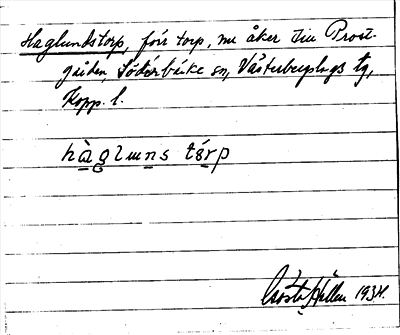 Haglundstorp, förr torp, nu åker till Prost-
gården, Söderbärke sn, Västerbergslags tg,
Kopp. l.
hàgluns tórp
Gösta Hallén 1934.